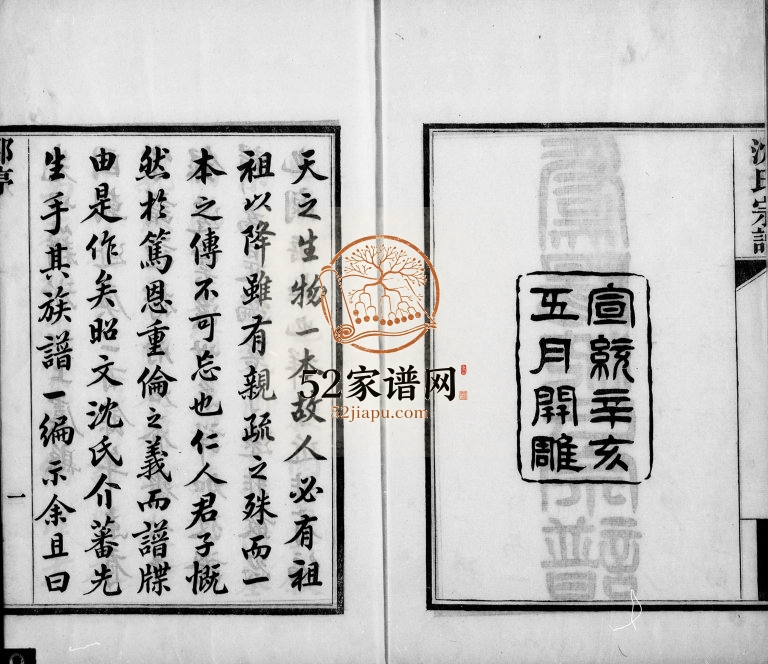 沈氏宗譜
宣統辛亥
五月開雕
天之生物一本故人必有祖
祖以降雖有親疏之殊而一
本之傳不可忘也仁人君子慨
然於篤恩重倫之義而譜牒
由是作矣昭文沈氏介蕃先
生手其族譜一編示余且曰
一
52家谱网
52jiapu.com